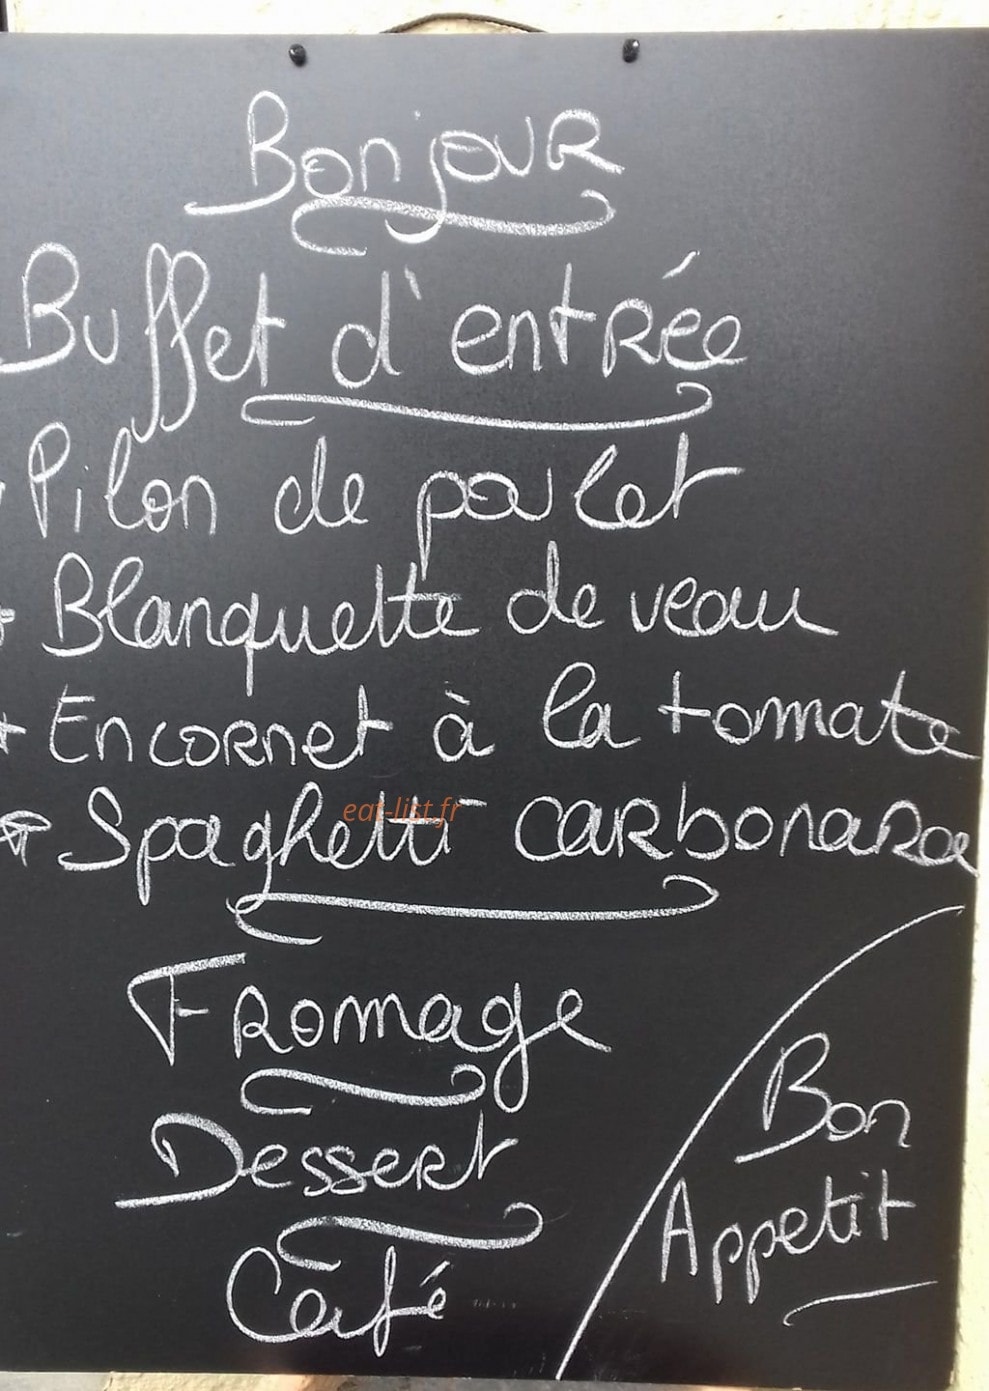 Bonjour
Buffet d'entrée
Pilon de poulet
+ Blanquette de veau
+ Encornet à la tomate
+ Spaghetti carbonara
eat-list.fr
Fromage
Dessert
Café
Bon
Appetit